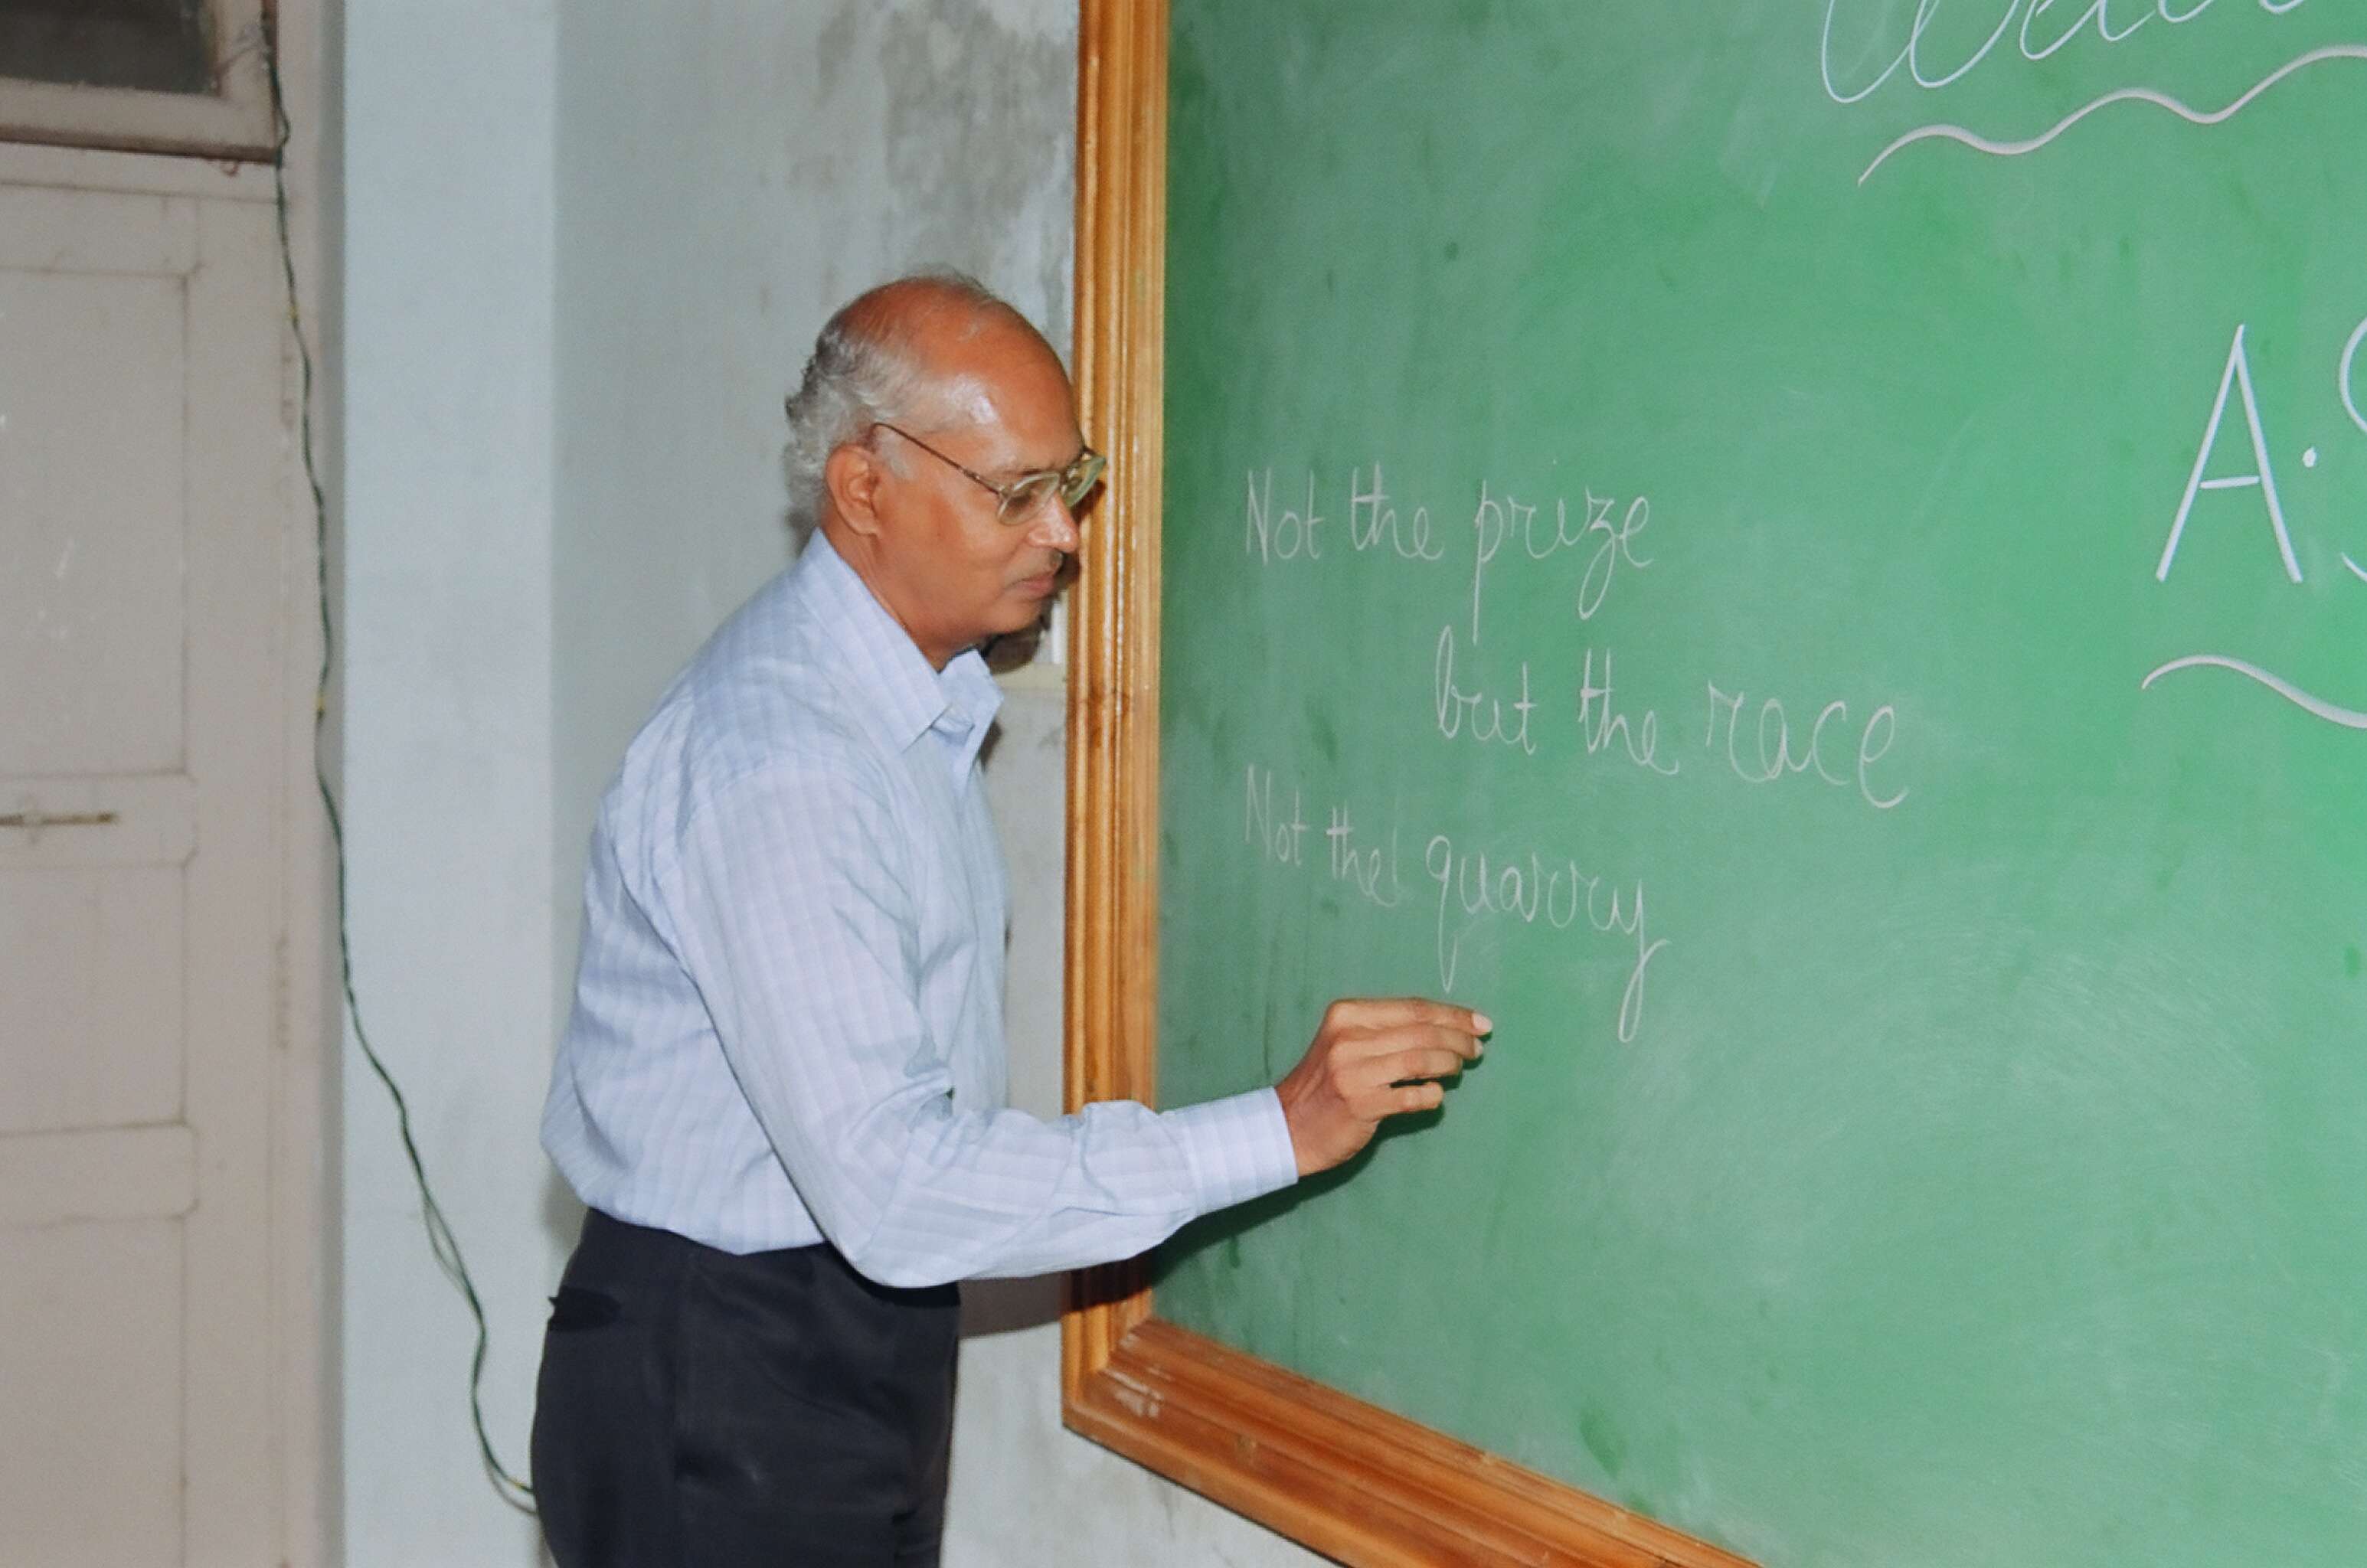 A.S
Not the prize
but the race
Not the quarry